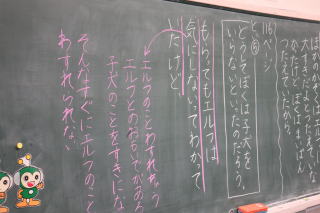 ほかのかぞくは
大すきになって
ぼくはまいばん
つたえていたから。
116ページ
と⑤
どうしてぼくは子犬を
いらないといったのだろう。
もらってもエルフは
気にしないってわかって
いたけど、
エルフのことわすれちゃう
エルフとのおもいで
子犬のことをすきにな
そんなすぐにエルフのこと
わすれられない